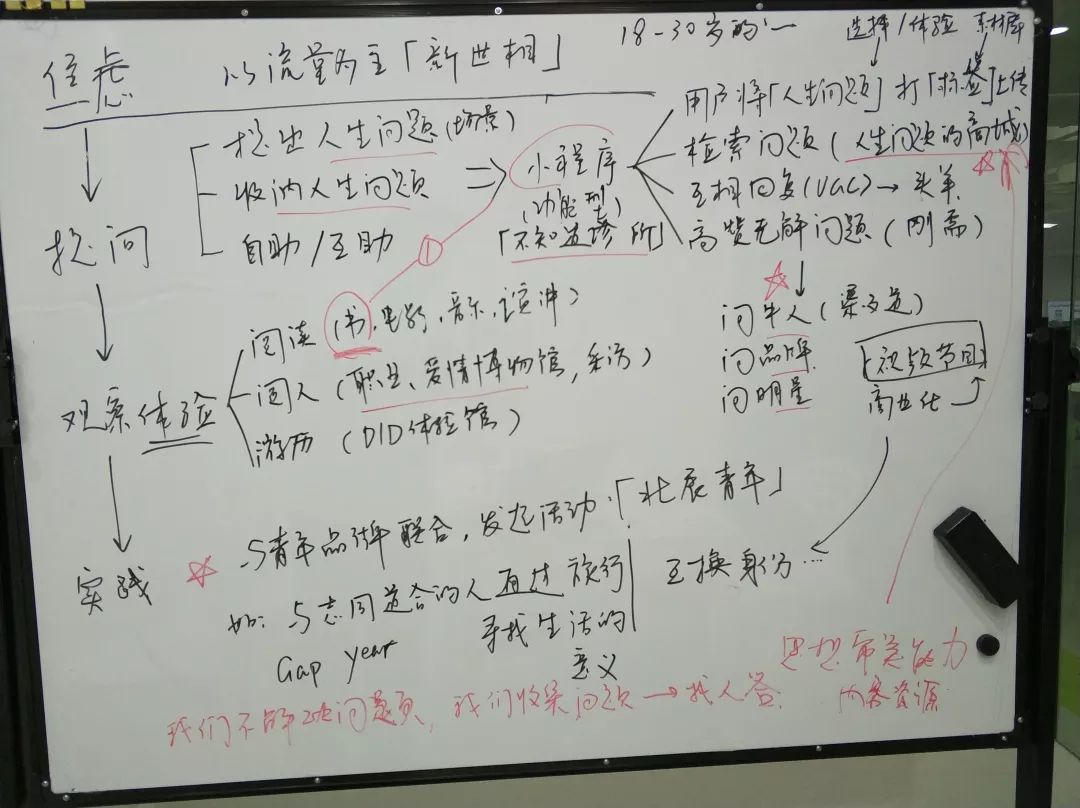 以流量为主「新世相」
18-30岁的
选择/体验 素材库
提出人生问题(场景)
收纳人生问题
自助/互助
小程序
(功能型)
「不知道诊所」
用户将「人生问题」打「标签」上传
检索问题(人生问题的商城)
互相回复(UGC)→头羊
高赞无解问题(刚需)
提问
①
阅读(书,电影,音乐,演讲)
阅人(职业、爱情博物馆,采访)
游历(DID体验馆)
观察体验
问牛人(渠道)
问品牌
问明星
「视频节目」
商业化
实践
与青年品牌联合,发起活动·「北辰青年」
如:与志同道合的人通过旅行
寻找生活的
意义
Gap year
互换身份…
思想 能力
内容资源
我们不解决问题,我们收集问题→找人答